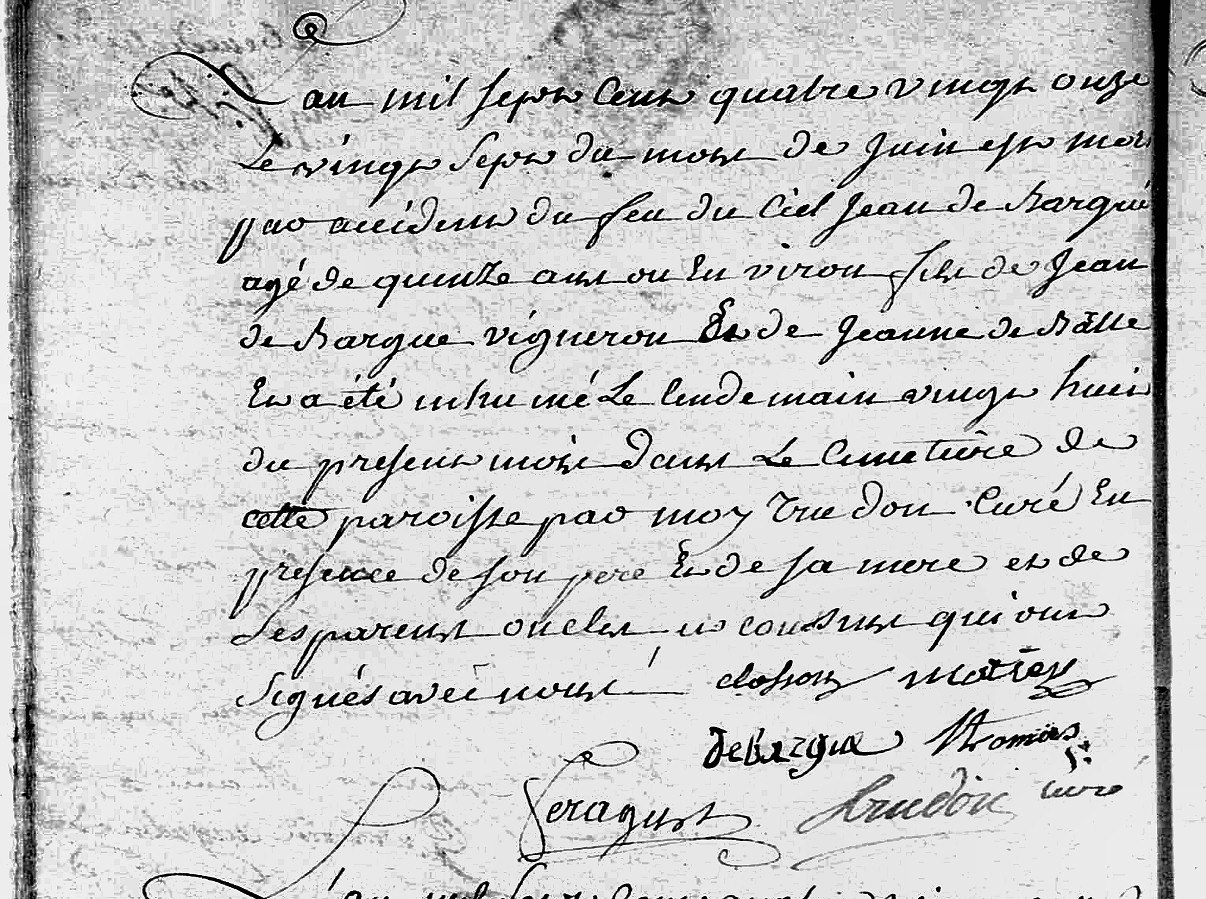 L'an mil sept cent quatre vingt onze
Le vingt sept du mois de Juin est mort
par accident du feu du Ciel Jean de Bargue
agé de quinze ans ou En viron fils de Jean
de Bargue vigneron Et de Jeanne de Balle
Et a été inhumé Le lendemain vingt huit
du present mois dans Le Cimetiere de
cette paroisse par moy Trudon Curé En
presence de son pere Et de sa mere et de
Ses parents oncles et cousins qui ont
Signés avec nous closson
debargue Thomas
Feragust Trudon curé
L'an mil sept cent